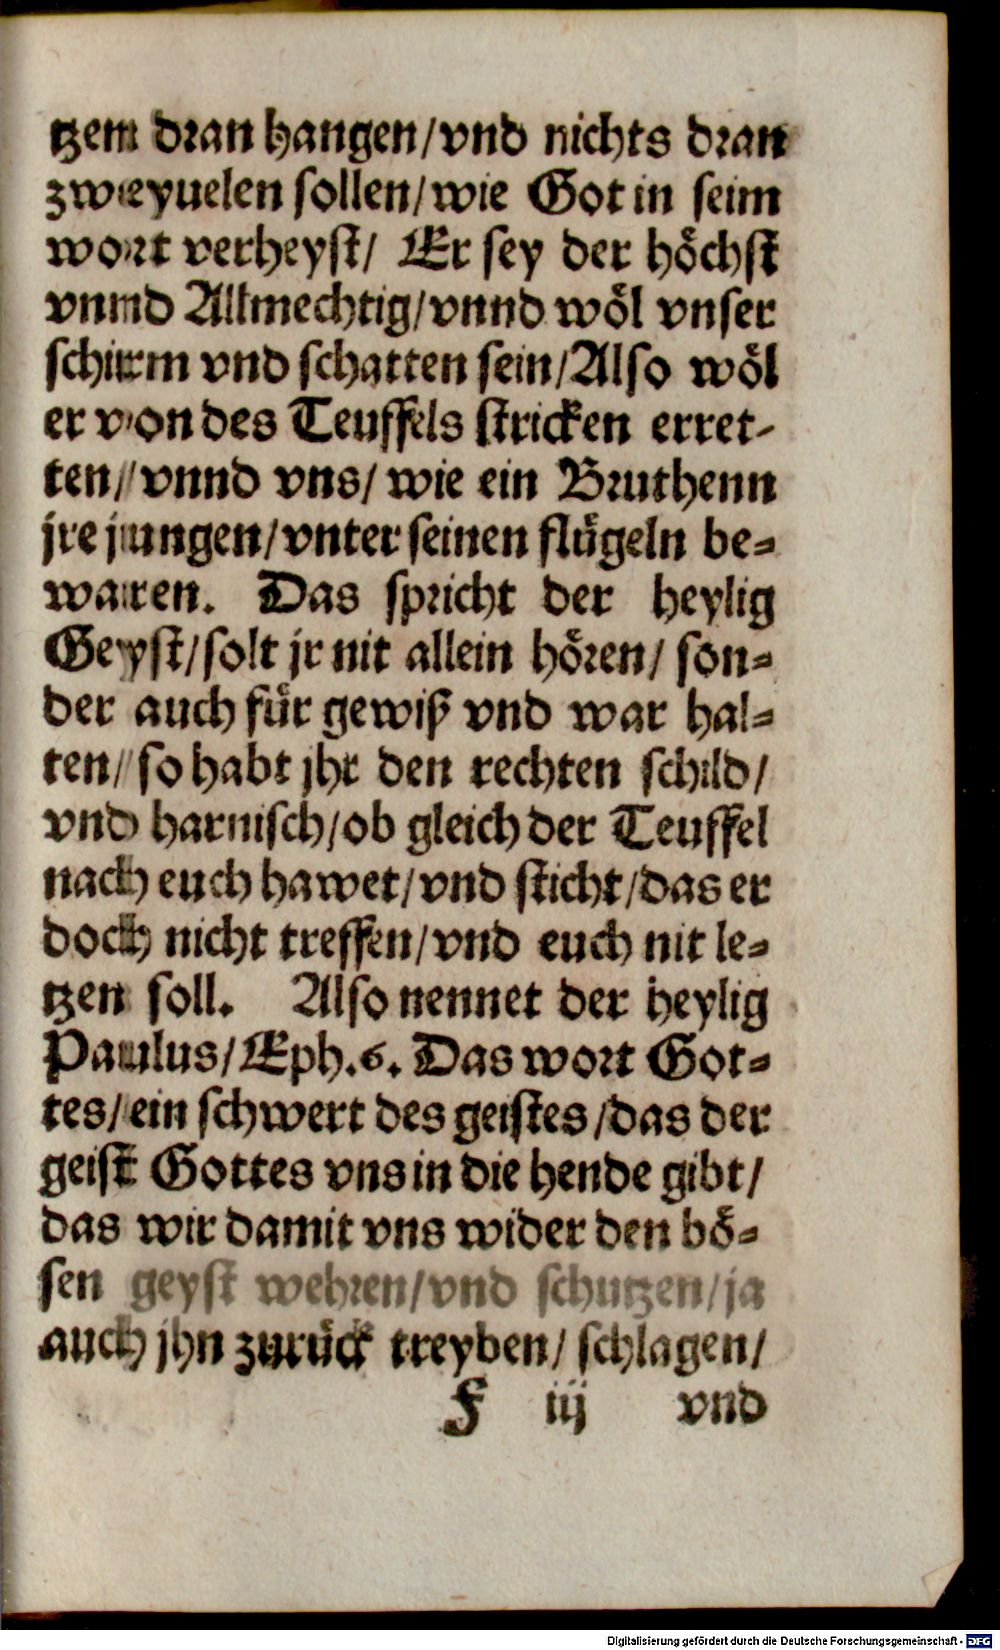 tzem dran hangen/vnd nichts dran
zweyuelen sollen/wie Got in seim
wort verheyst/ Er sey der höchst
vnnd Allmechtig/vnnd wöl vnser
schirm vnd schatten sein/Also wöl
er von des Teuffels stricken erret-
ten/vnnd vns/ wie ein Bruthenn
jre jungen/vnter seinen flügeln be-
waren. Das spricht der heylig
Geyst/solt jr nit allein hören/ son-
der auch für gewiß vnd war hal-
ten/so habt jhr den rechten schild/
vnd harnisch/ob gleich der Teuffel
nach euch hawet/vnd sticht/das er
doch nicht treffen/vnd euch nit le-
tzen soll. Also nennet der heylig
Paulus/Eph.6. Das wort Got-
tes/ein schwert des geistes/das der
geist Gottes vns in die hende gibt/
das wir damit vns wider den bö-
sen geyst wehren/vnd schutzen/ja
auch jhn zurück treyben/ schlagen/
F iij vnd
Digitalisierung gefördert durch die Deutsche Forschungsgemeinschaft - DFG